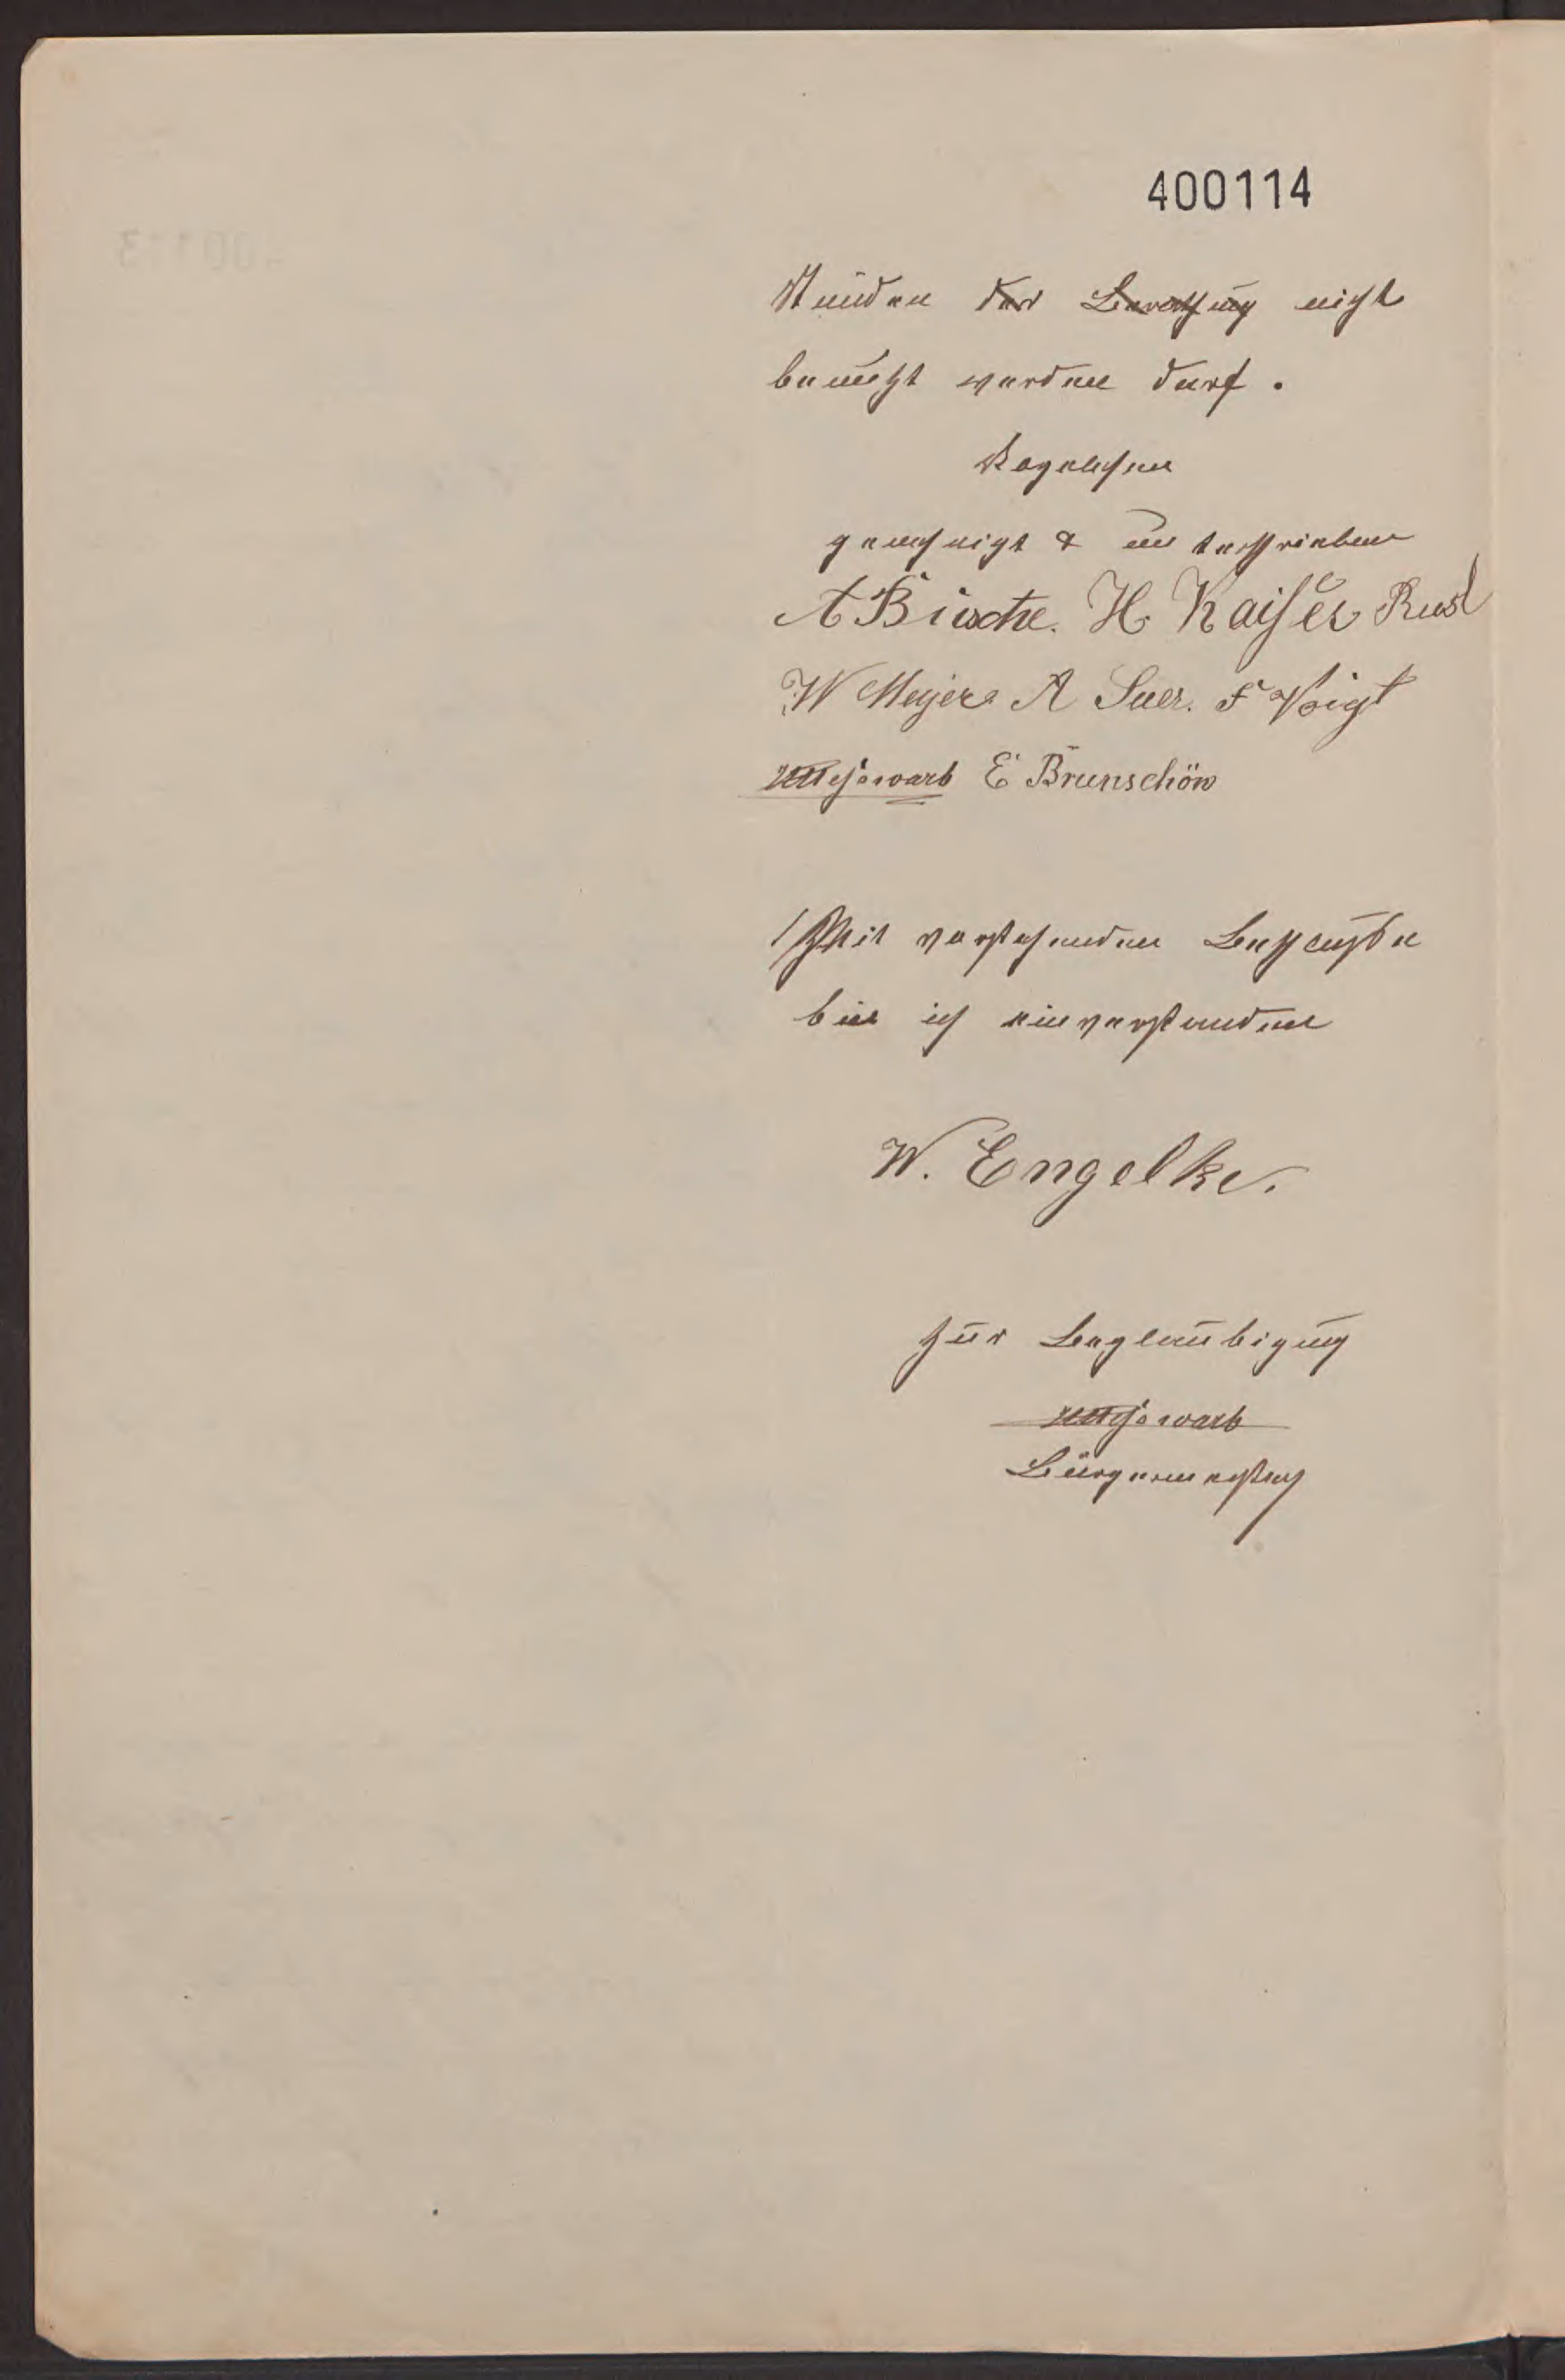 400114
Stunden der Berathung nicht
benutzt werden darf.
Vorgelesen
genehmigt & unterschrieben
A Büsche. H. Kaiser Rust
W Meyer A Suer. F Voigt
E Brunschön
Mit vorstehendem Beschlusse
bin ich einverstanden
W. Engelke.
Zur Beglaubigung
Bürgermeister